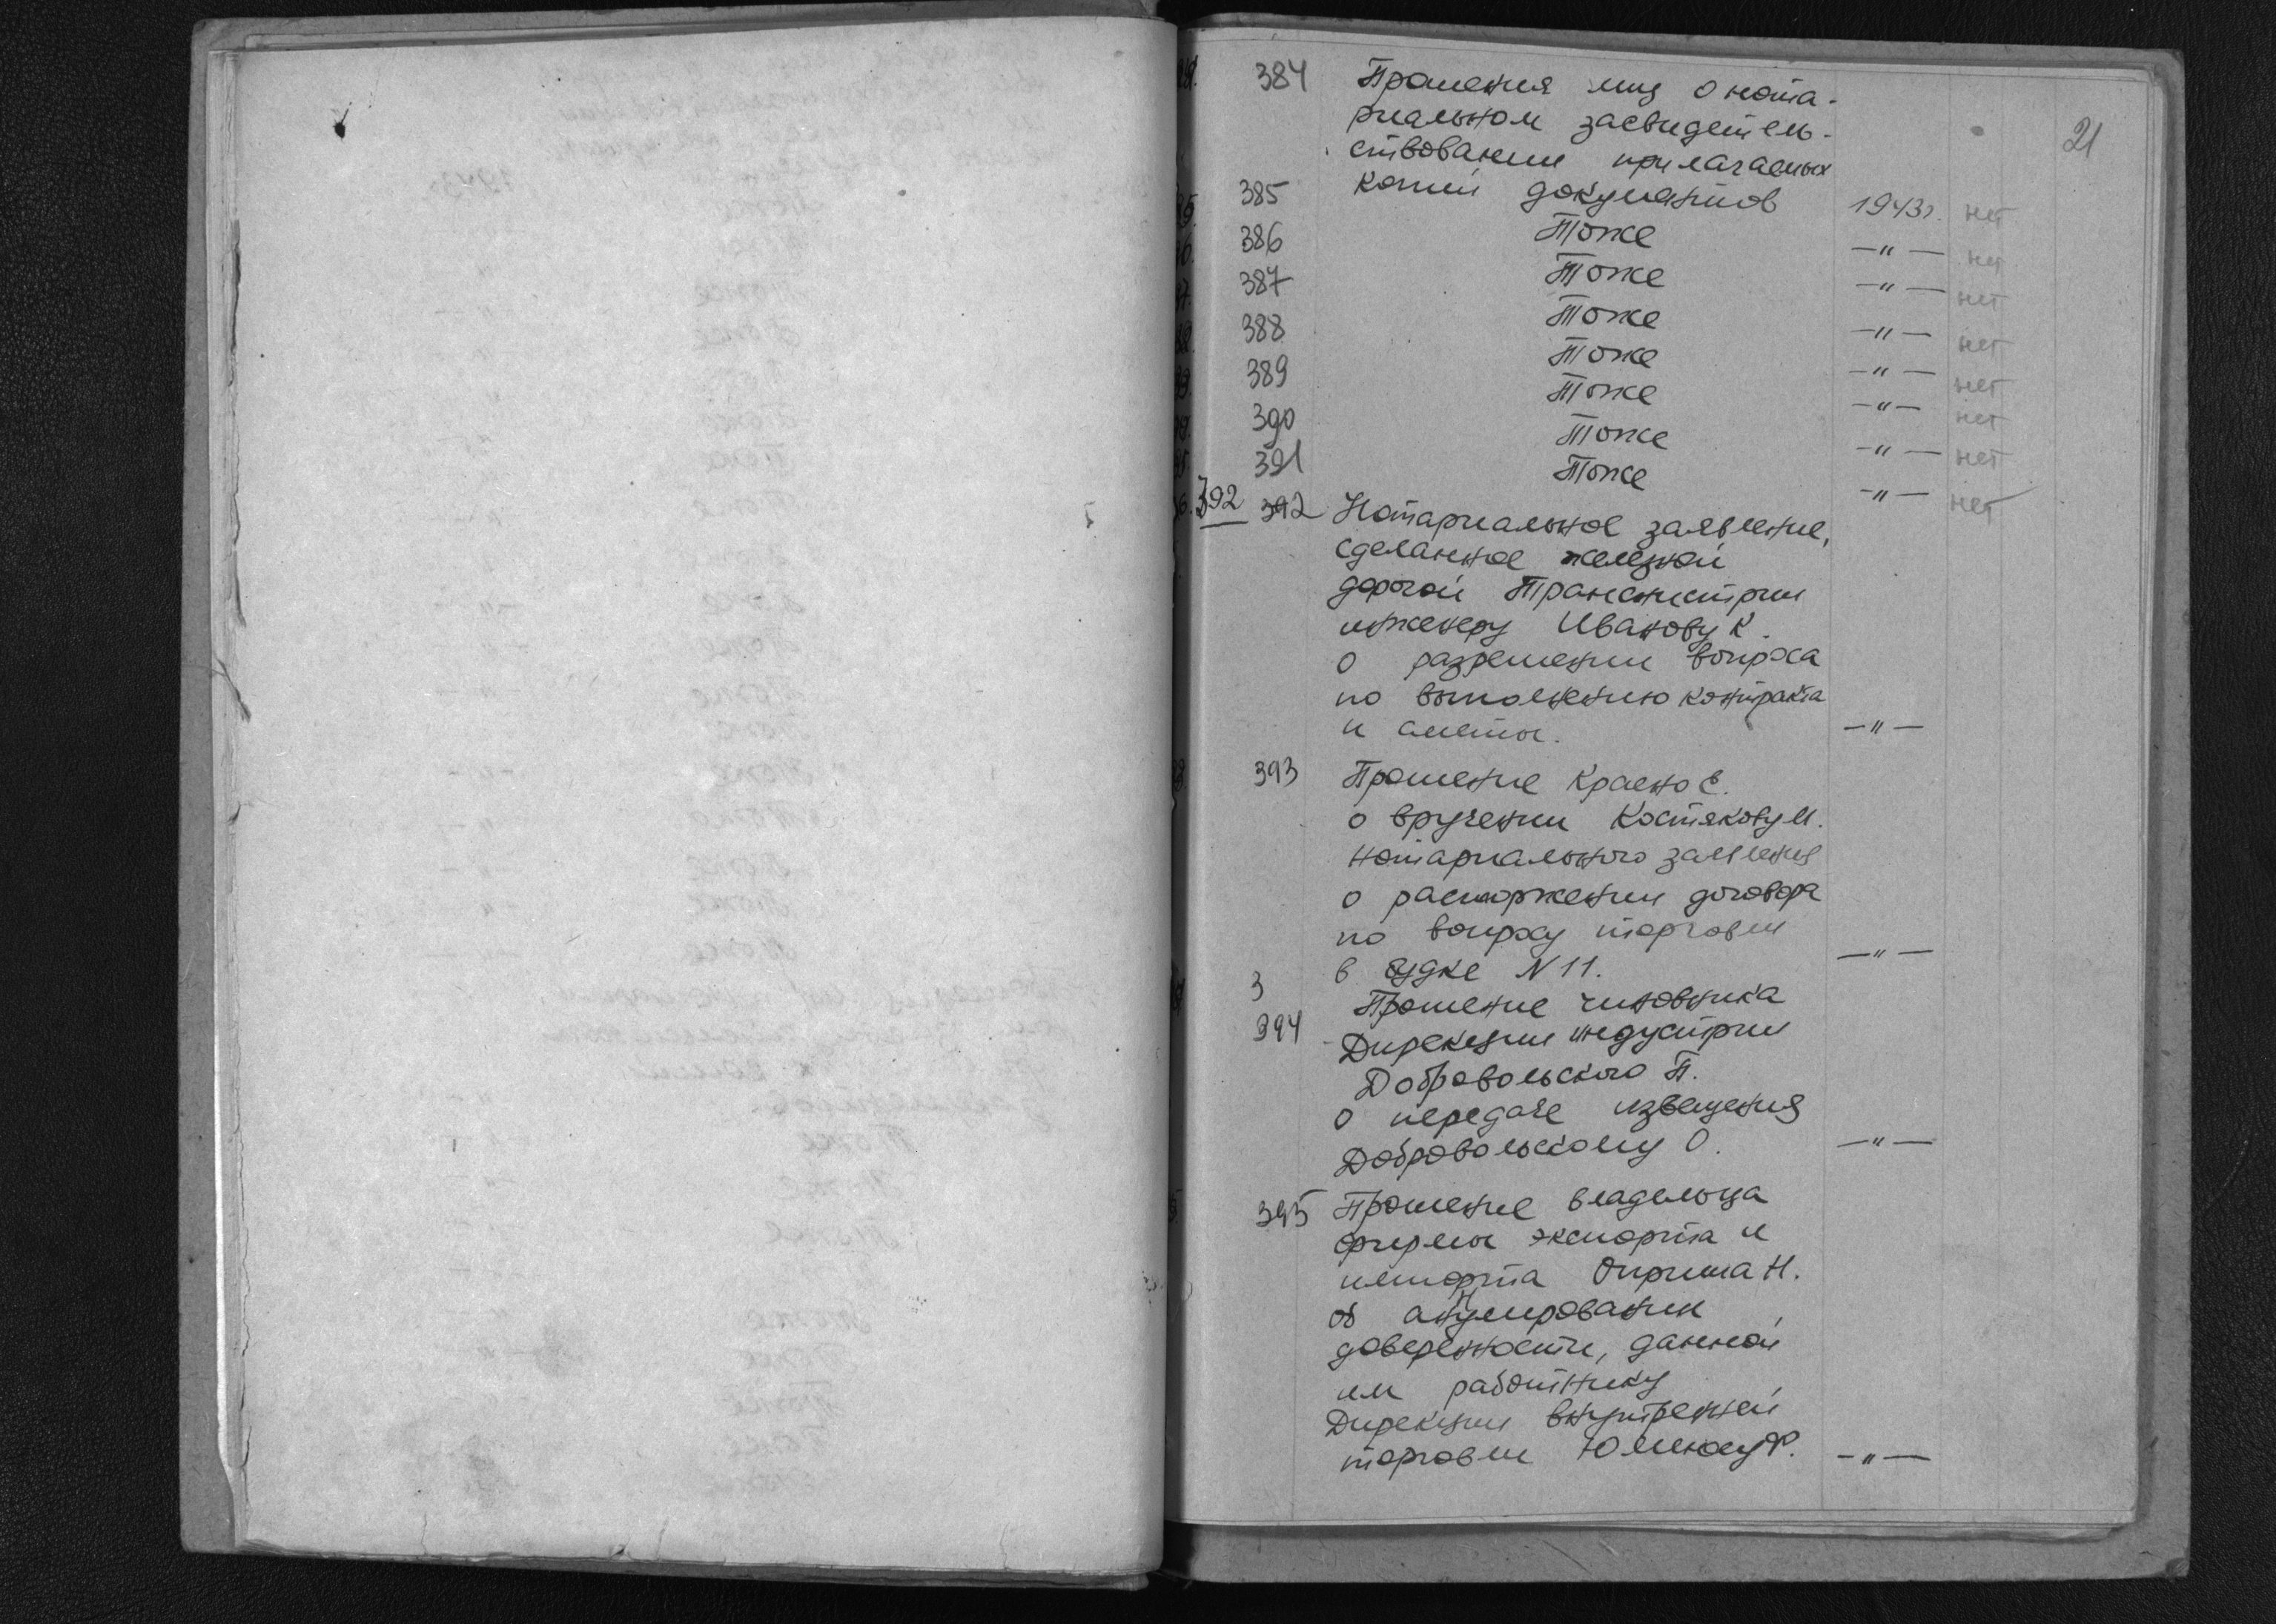 21
384 Прошения лиц о нота-
риальном засвидетель-
ствовании прилагаемых
385 копий документов 1943г. нет
386 Тоже —"— нет
387 Тоже —"— нет
388 Тоже —"— нет
389 Тоже —"— нет
Тоже —"— нет
390 Тоже —"— нет
391 Тоже —"— нет
392 392 Нотариальное заявление,
сделанное железной
дорогой Транснистрии
инженеру Иванову К.
о разрешении вопроса
по выполнению контракта
и сметы. —"—
393 Прошение Е.
о вручении Костякову И.
нотариального заявления
о расторжении договора
по вопросу торговли
в будке N 11. —"—
3
394 Прошение чиновника
Дирекции индустрии
Добровольского П.
о передаче извещения
Добровольскому О. —"—
395 Прошение владельца
фирмы экспорта и
импорта Н.
об анулировании
доверенности, данной
им работнику
Дирекции внутренней
торговли Ф. —"—